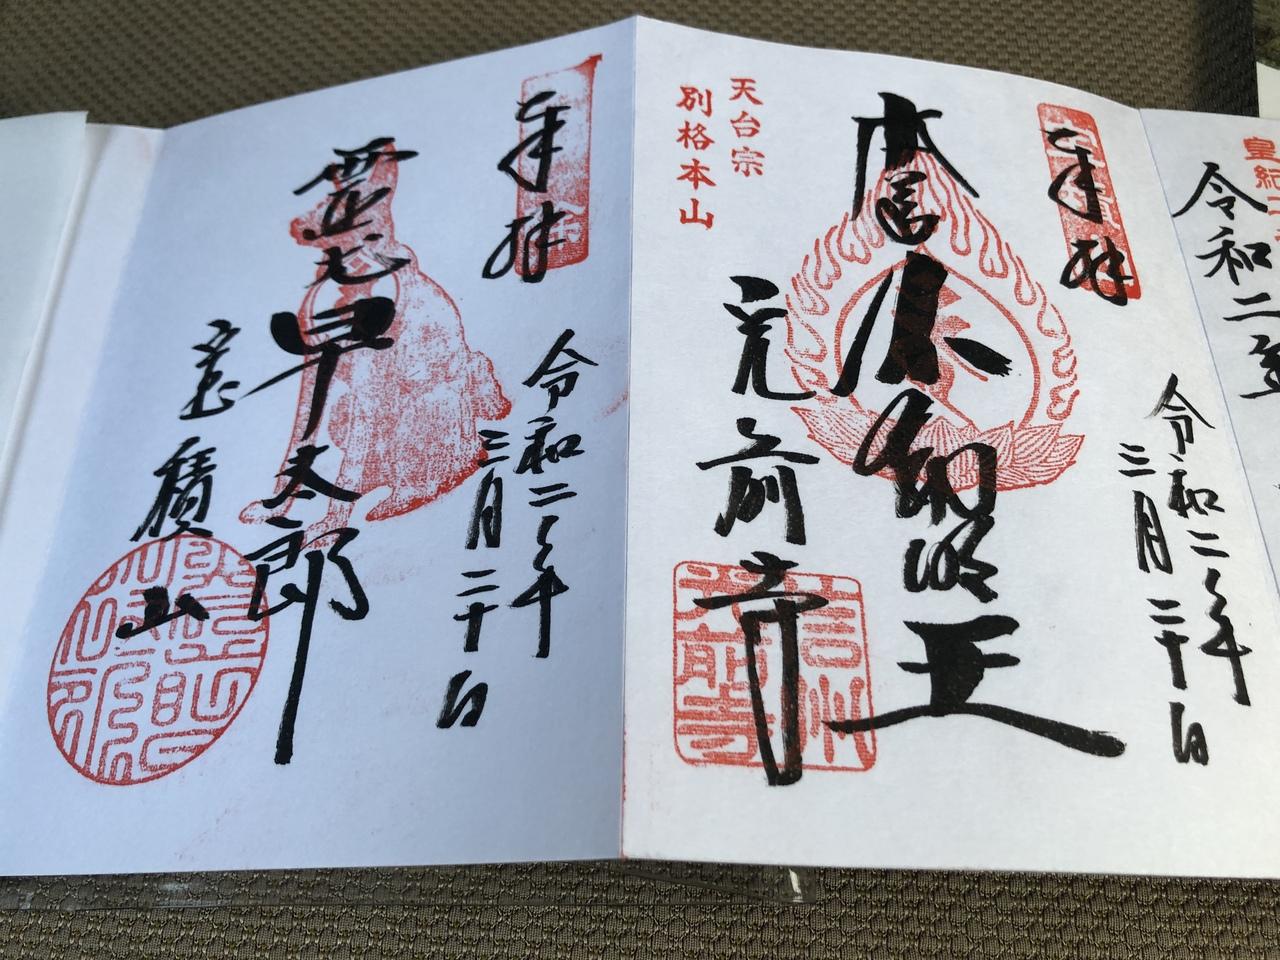 皇紀
令和二年
奉拝
令和二年
三月二十日
本尊不動明王
天台宗
別格本山
光前寺
信州
光前寺
奉拝
令和二年
三月二十日
霊犬早太郎
宝積山